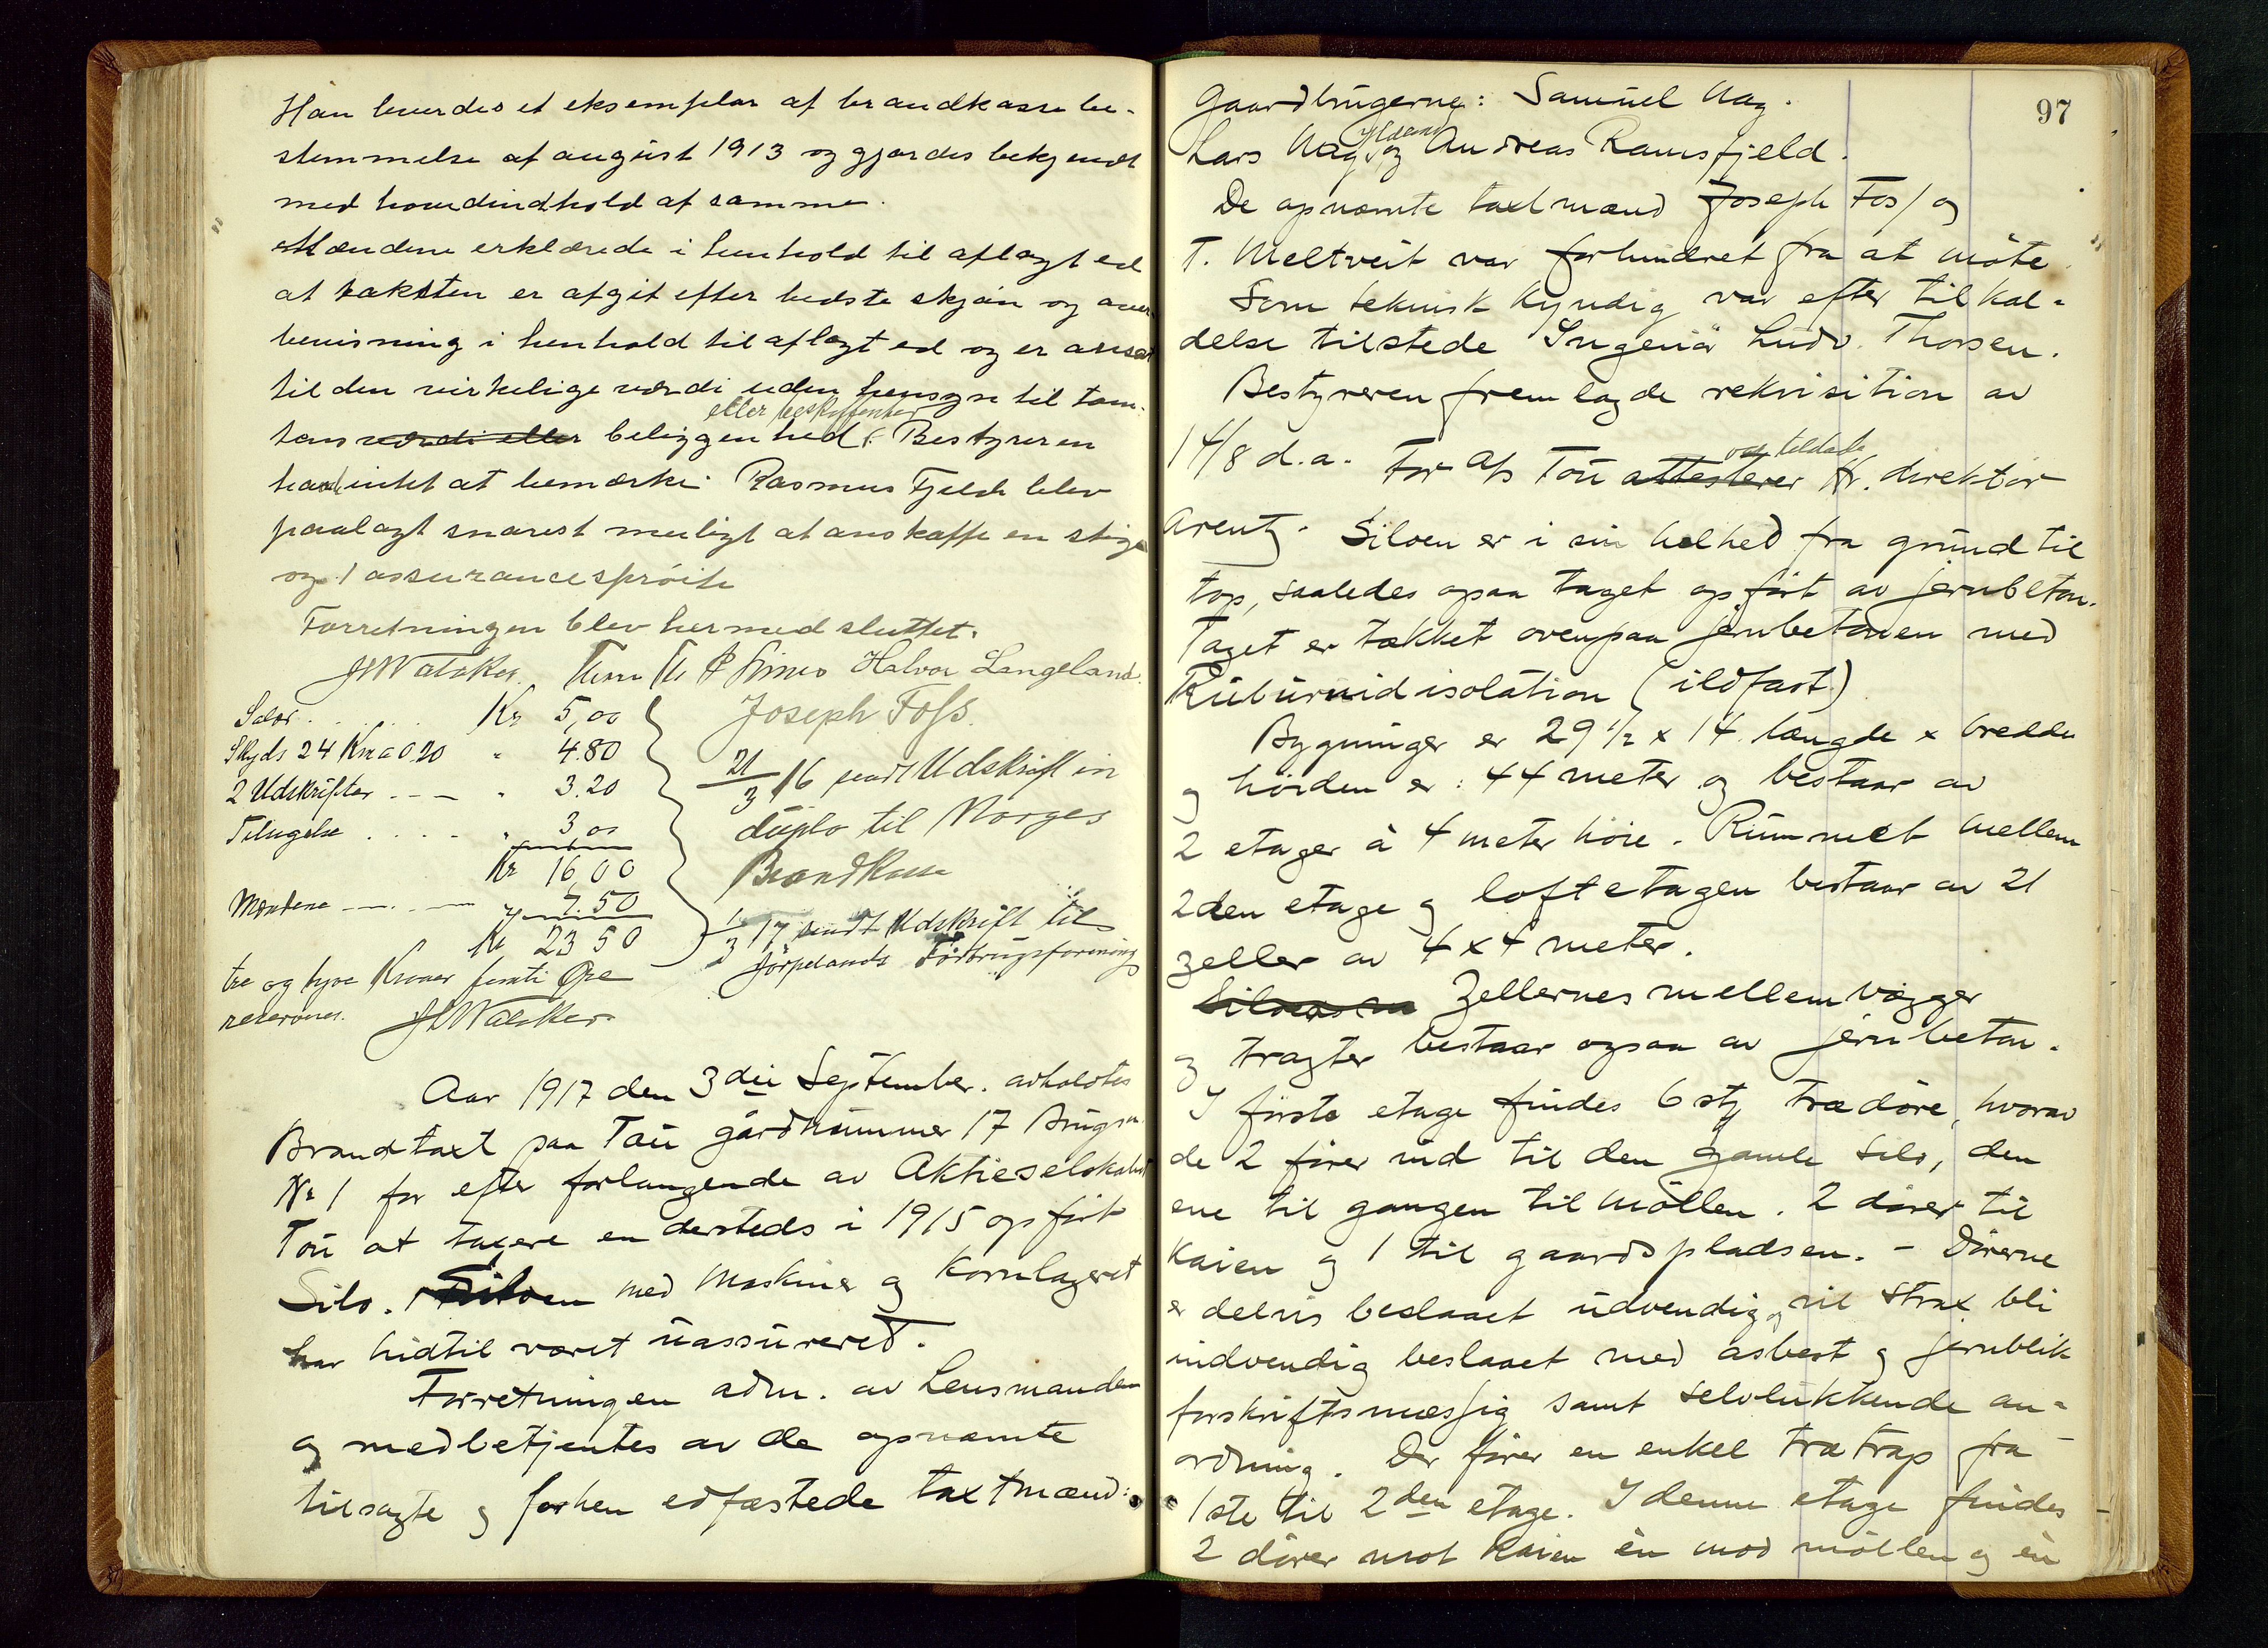 Han leverdes et eksemplar af brandkasse be-
stemmelse af august 1913 og gjordes bekjendt
med hovedindhold af samme.
Mændene erklærede i henhold til aflagt ed
at taksten er afgit efter bedste skjøn og over-
bevisning i henhold til aflagt ed og er ansat
til den virkelige værdi uden hensyn til tom-
eller beskaffenhed
tens værdi eller beliggenhed. Bestyreren
havd intet at bemærke. Rasmus Fjelde blev
paalagt snarest muligt at anskaffe en stige
og 1 assurancesprøite
Forretningen blev hermed sluttet.
Halvor Langeland.
Salær . . . . Kr 5,00 Joseph Foss.
Skyds 24 Km a 0.20 " 4.80
2 Udskrifter - - - " 3.20 21/3 16 sendt Udskrift in
Tilsigelse . . . . " 3 00 duplo til Norges
Kr 16,00 Brandkasse
Mændene - - - " 7.50
1/3 17 sendt Udskrift til
Kr 23 50
Jørpelands Forbrugsforening
tre og tyve Kroner femti Øre
Aar 1917 den 3die September. avholdtes
Brandtaxt paa Tou gårdnummer 17 Brugs
Nr 1 for efter forlangende av Aktieselskabet
Tou at taxere en dersteds i 1915 opført
Silo. Siloen med Maskiner og Kornlageret
har hidtil været uassureret.
Forretningen adm. av Lensmanden
og medbetjentes av de opnævnte
tilsagte og forhen edfæstede taxtmænd:
97
Gaardbrugerne: Samuel Aag.
Lars Aag og Andreas Ramsfjeld.
De opnævnte taxtmænd Joseph Foss og
T. Meltveit var forhindret fra at møte.
Som teknisk kyndig var efter tilkal-
delse tilstede Ingeniør Ludv. Thorsen.
Bestyreren fremlagde rekvisition av
var tilstede
14/8 d.a. For A/s Tou attesterer Hr. direktør
Arentz. Siloen er i sin helhed fra grund til
top, saaledes ogsaa taget opført av jernbeton.
Taget er tækket ovenpaa jernbetonen med
Ruburoidisolation (ildfast)
Bygninger er 29 1/2 x 14 længde x bredde
og høiden er: 44 meter og bestaar av
2 etager à 4 meter høie. Rummet mellem
2den etage og loftetagen bestaar av 21
zeller av 4x4 meter.
Zellernes mellemvægger
og tragter bestaar ogsaa av jernbeton.
I første etage findes 6 stz trædøre, hvorav
de 2 fører ind til den gamle silo, den
ene til gangen til Møllen. 2 dører til
Kaien og 1 til gaardspladsen. - Dørerne
er delvis beslaaet udvendig, og vil strax bli
indvendig beslaaet med asbest og jernblik
forskriftsmæssig samt selvlukkende an-
ordning. Der fører en enkel trætrap fra
1ste til 2den etage. I denne etage findes
2 dører mot Kaien èn mod møllen og èn